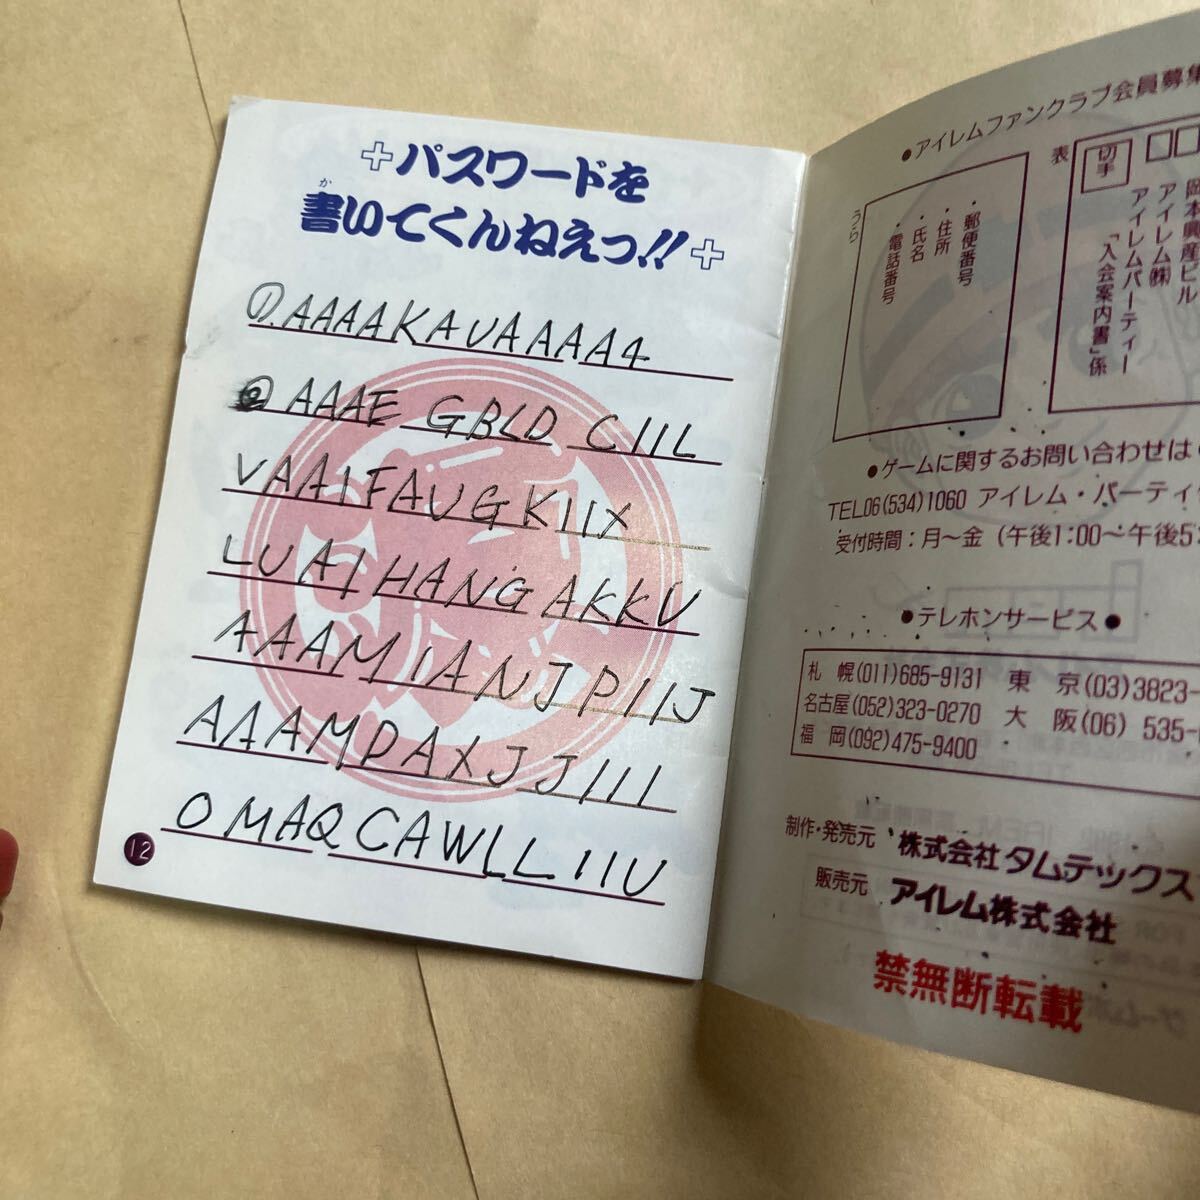 パスワードを
書いてくんねえっ!!
か
①.AAAAKAUAAAA4
② AAAE GBLD CIIL
VAAIFAUGKIIX
LUAIHANGAKKU
AAAMIANJPIIJ
AAAMPAXJJIIL
OMAQCAWLLIIU
12
●アイレムファンクラブ会員募集
表
切手
岡本興産ビル
アイレム㈱
アイレムパーティー
「入会案内書」係
うら
・郵便番号
・住所
・氏名
・電話番号
●ゲームに関するお問い合わせは
TEL06(534)1060 アイレム・パーティ
受付時間：月〜金 (午後1:00〜午後5:
●テレホンサービス●
札 幌(011)685-9131 東 京(03)3823-
名古屋(052)323-0270 大 阪(06) 535-
福 岡(092)475-9400
制作・発売元 株式会社 タムテックス
販売元 アイレム株式会社
禁無断転載